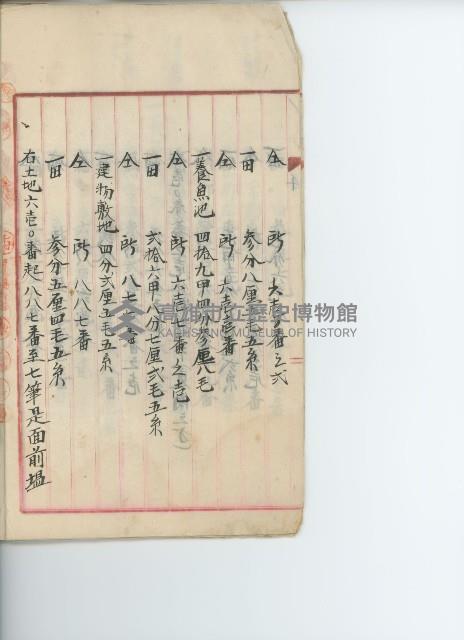 仝　所　六壱〇番之弐
一田　参分八厘五毛五糸
仝　所　六壱壱番
一養魚池　四拾九甲四分参厘八毛
仝　所　六壱七番之壱
一田　弐拾六甲八分七厘弐毛五糸
仝　所　八七
一建物敷地　四分弐厘五毛五糸
仝　所　八八七番
一田　参分五厘四毛五糸
右土地六壱〇番起八八七番至七筆是面前塭
高雄市立歷史博物館
KAOHSIUNG MUSEUM OF HISTORY